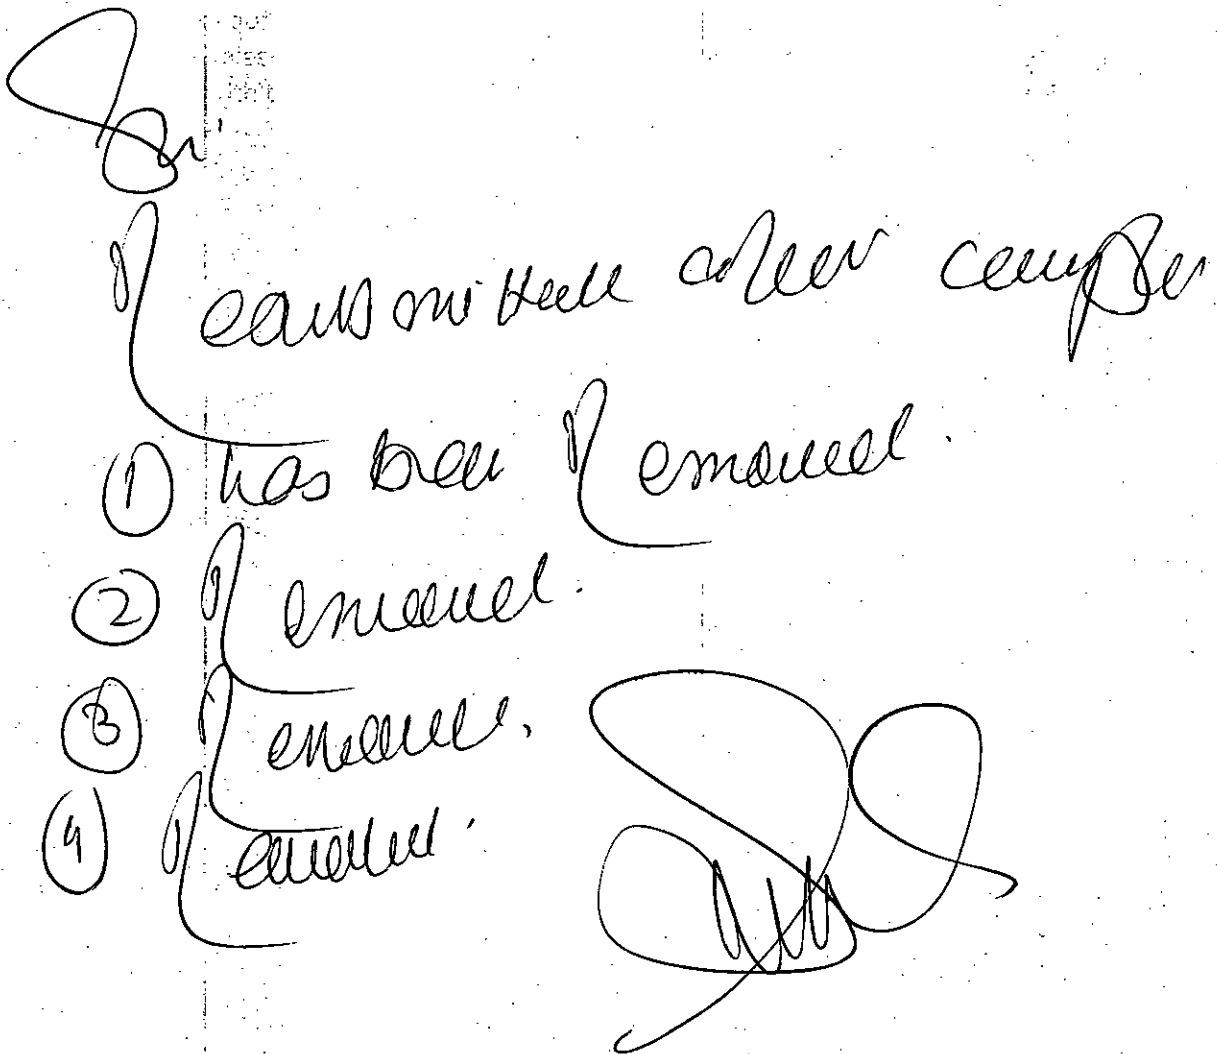 Sir,
Resubmitted after compln
① has been Removed.
② Removed.
③ Removed.
④ Removed.